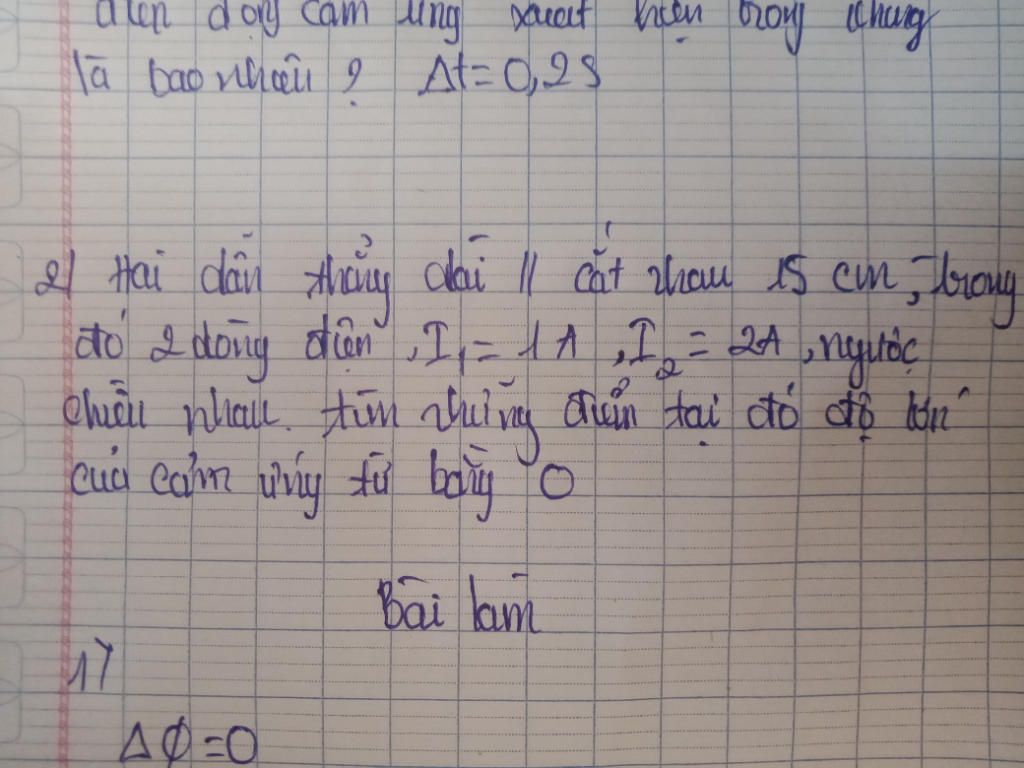 điện động cảm ứng xuất hiện trong khung
là bao nhiêu ? Δt = 0,2 s
2) Hai dẫn thẳng dài // cắt nhau 15 cm, trong
đó 2 dòng điện, I₁ = 1A, I₂ = 2A, ngược
chiều nhau. tìm những điểm tại đó độ lớn
của cảm ứng từ bằng 0
Bài làm
1)
ΔΦ = 0